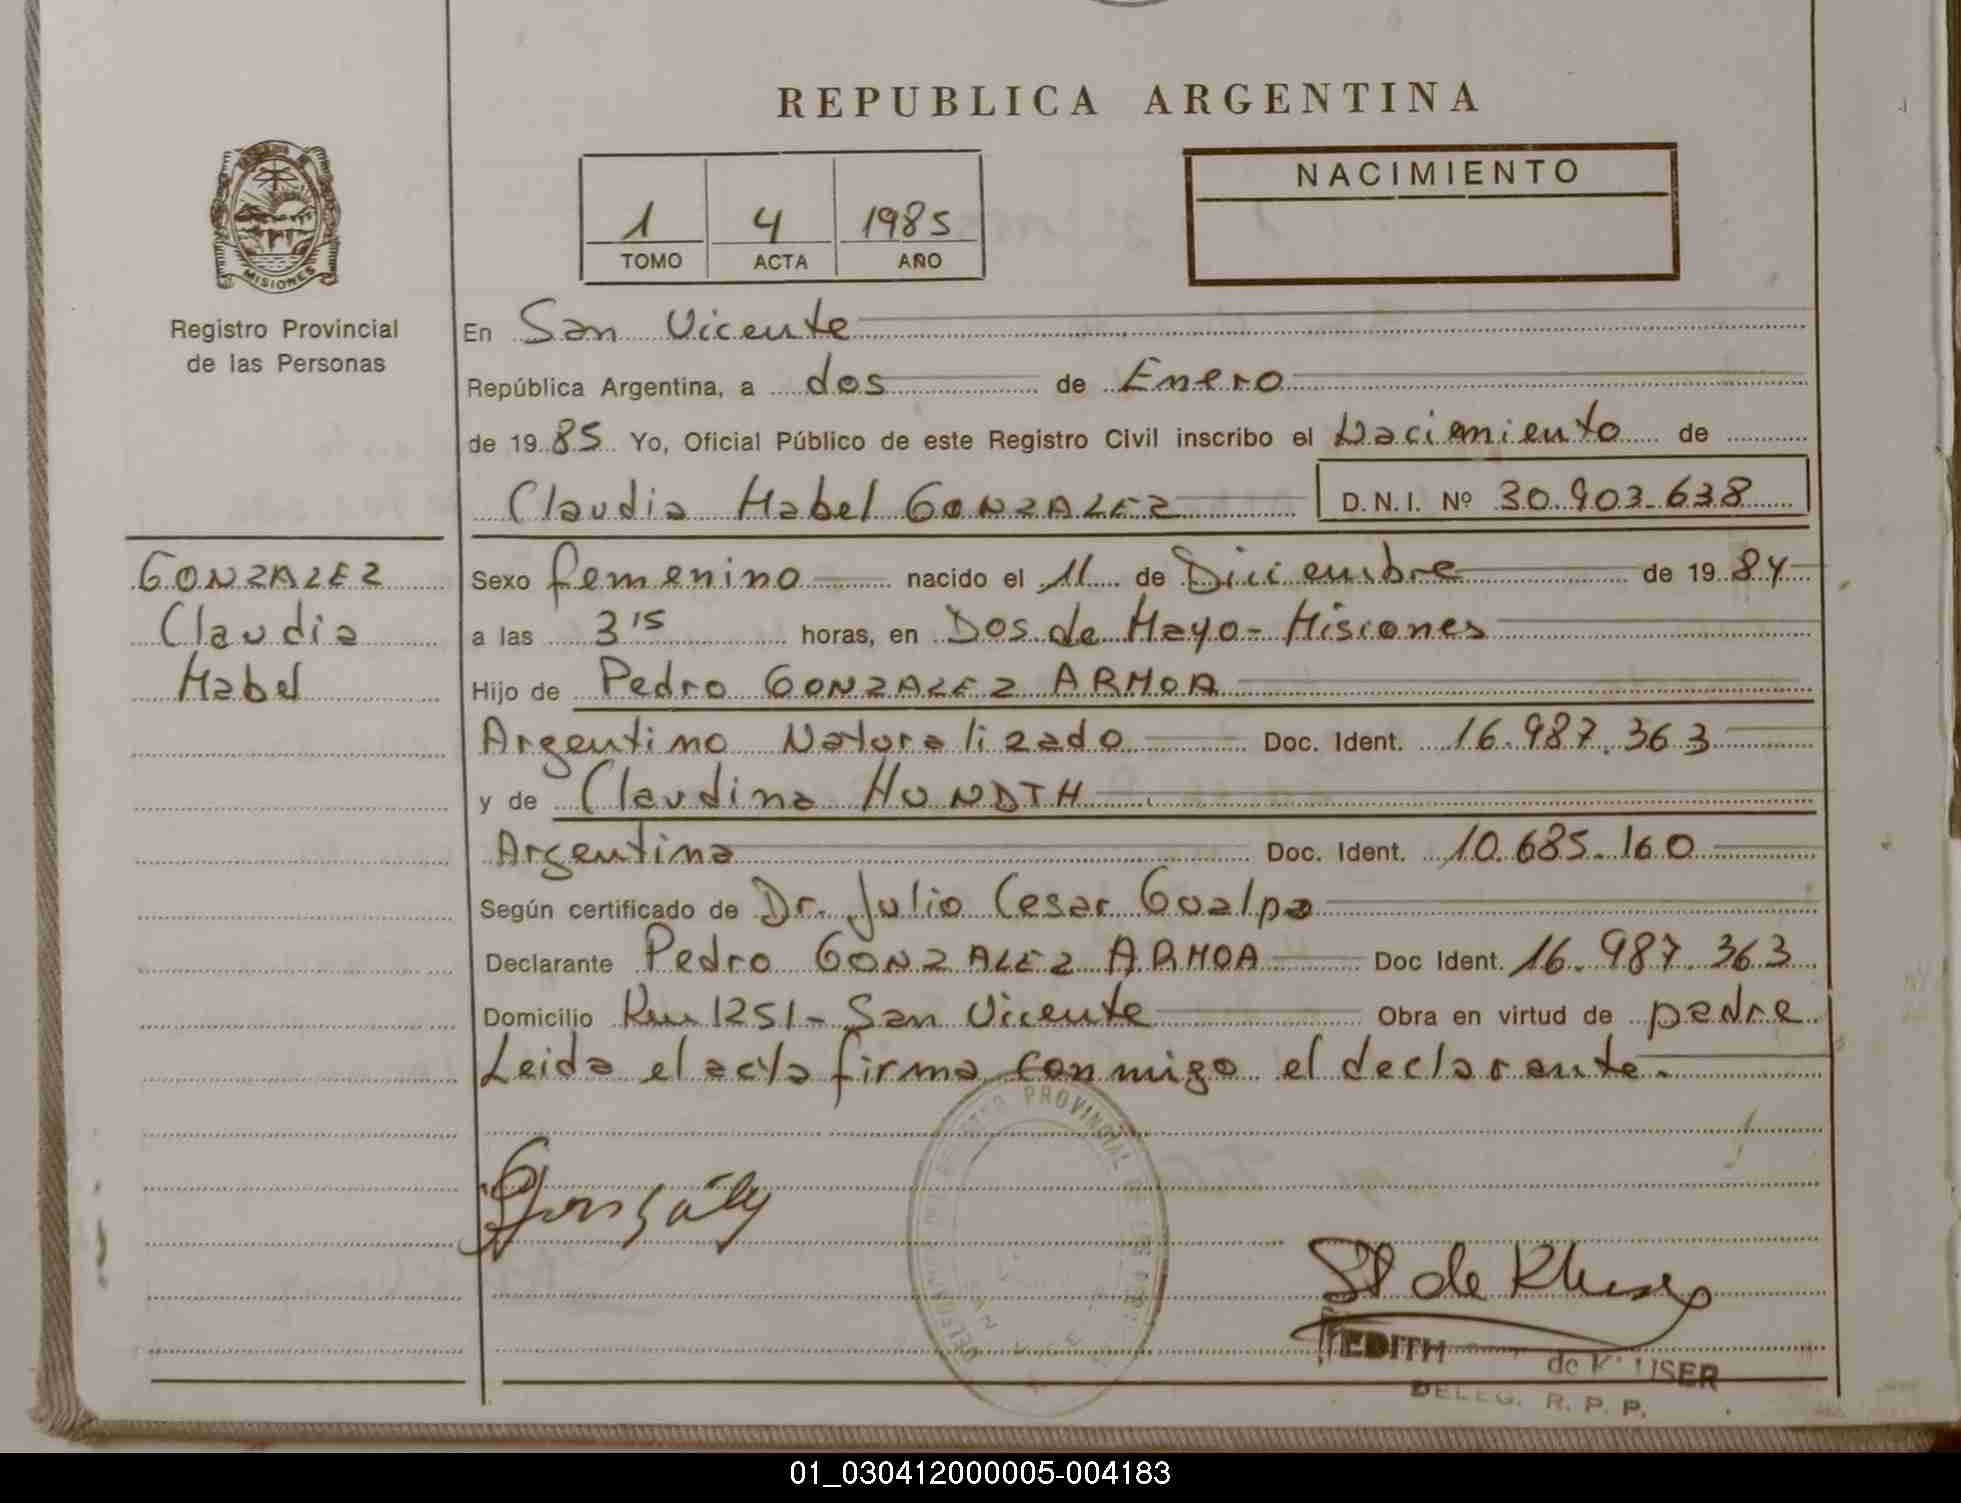 REPUBLICA ARGENTINA
MISIONES
Registro Provincial
de las Personas
1 4 1985
TOMO ACTA AÑO
NACIMIENTO
En San Vicente
República Argentina, a dos de Enero
de 1985 Yo, Oficial Público de este Registro Civil inscribo el Nacimiento de
Claudia Mabel GONZALEZ D.N.I. Nº 30.903.638
GONZALEZ
Claudia
Mabel
Sexo femenino nacido el 11 de Diciembre de 1984
a las 3 15 horas, en Dos de Mayo - Misiones
Hijo de Pedro GONZALEZ ARMOA
Argentino Naturalizado Doc. Ident. 16.987.363
y de Claudina HUNDTH
Argentina Doc. Ident. 10.685.160
Según certificado de Dr. Julio Cesar Gualpa
Declarante Pedro GONZALEZ ARMOA Doc Ident. 16.987.363
Domicilio Km 1251 - San Vicente Obra en virtud de padre
Leida el acta firma conmigo el declarante.
REGISTRO PROVINCIAL DE LAS
Gonzály
EDITH de K USER
DELEG. R. P. P.
01_030412000005-004183